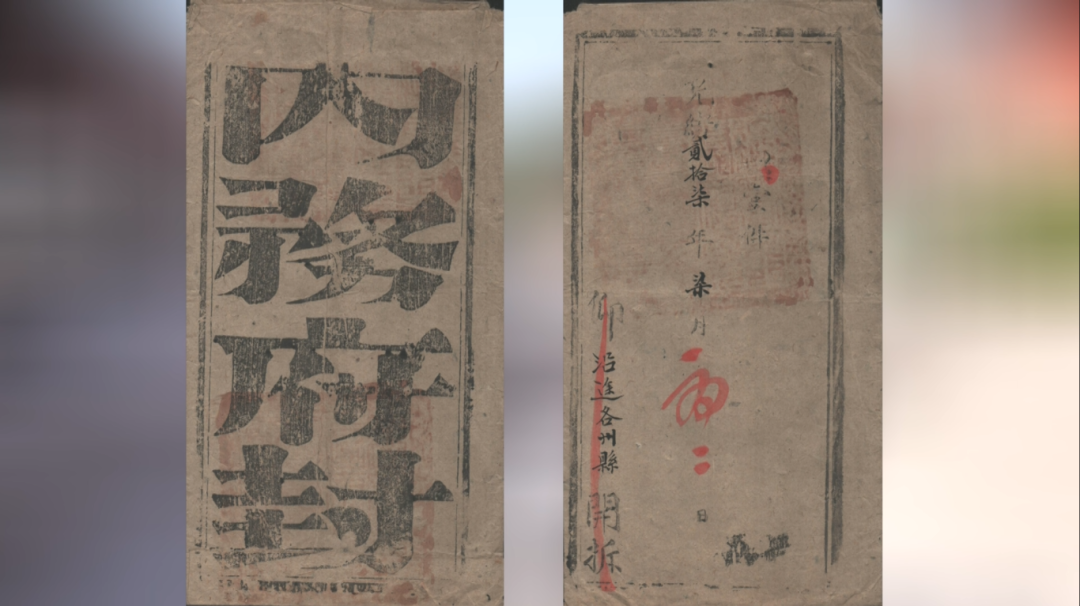 內務府封
件
光緒貳拾柒年柒月二日
仰沿途各州縣開拆